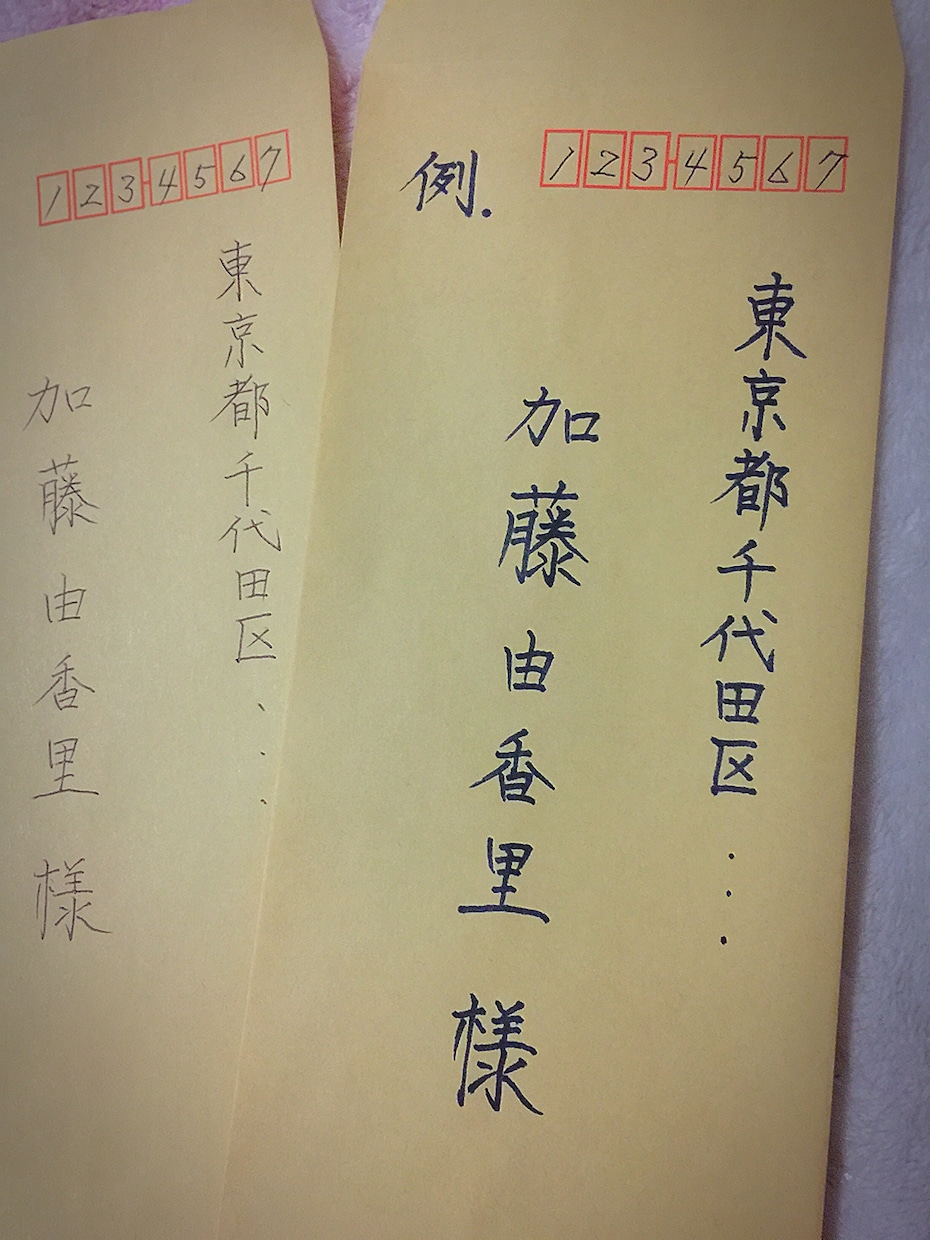 例.
1234567
東京都千代田区...
加藤由香里様
1234567
東京都千代田区...
加藤由香里様